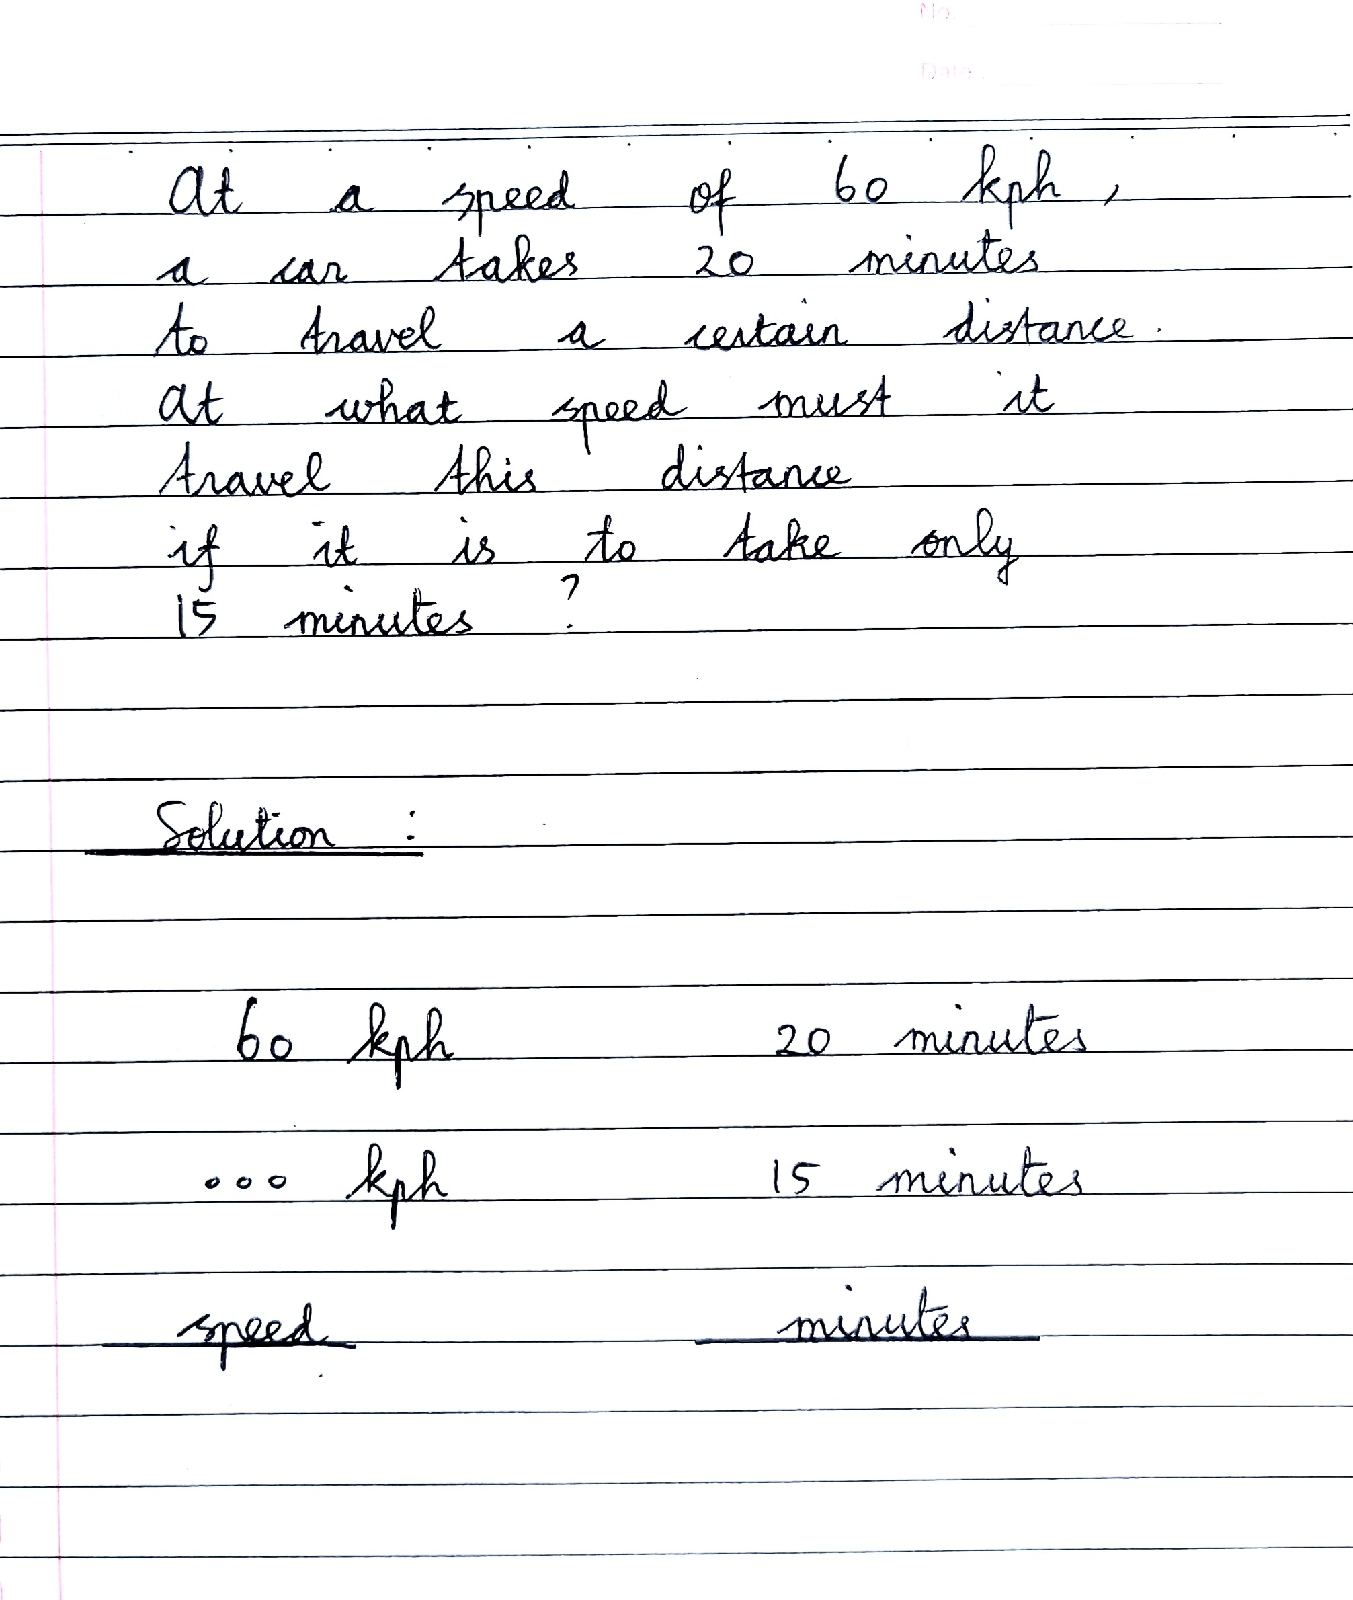 No.
Date.
At a speed of 60 kph,
a car takes 20 minutes
to travel a certain distance.
At what speed must it
travel this distance
if it is to take only
15 minutes ?
Solution :
60 kph 20 minutes
... kph 15 minutes
speed minutes